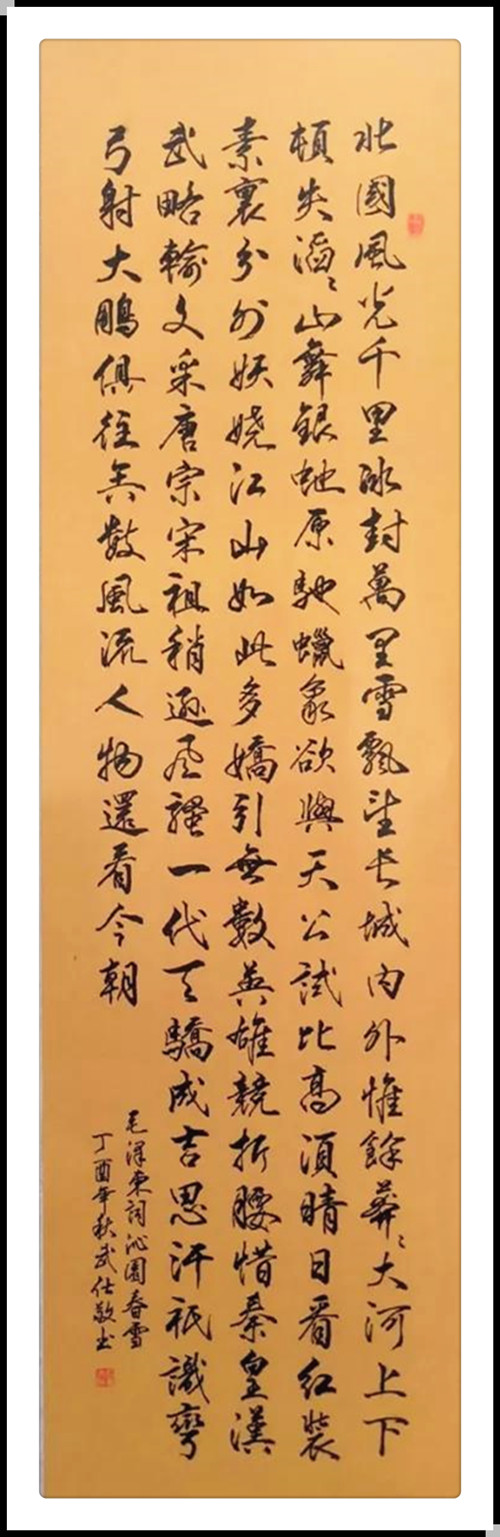 北國風光千里冰封萬里雪飄望長城內外惟餘莽〻大河上下
頓失滔〻山舞銀蛇原馳蠟象欲與天公試比高須晴日看紅裝
素裹分外妖嬈江山如此多嬌引無數英雄競折腰惜秦皇漢
武略輸文采唐宗宋祖稍遜風騷一代天驕成吉思汗祇識彎
弓射大鵰俱往矣數風流人物還看今朝
毛澤東詞沁園春雪
丁酉年秋武仕敬书